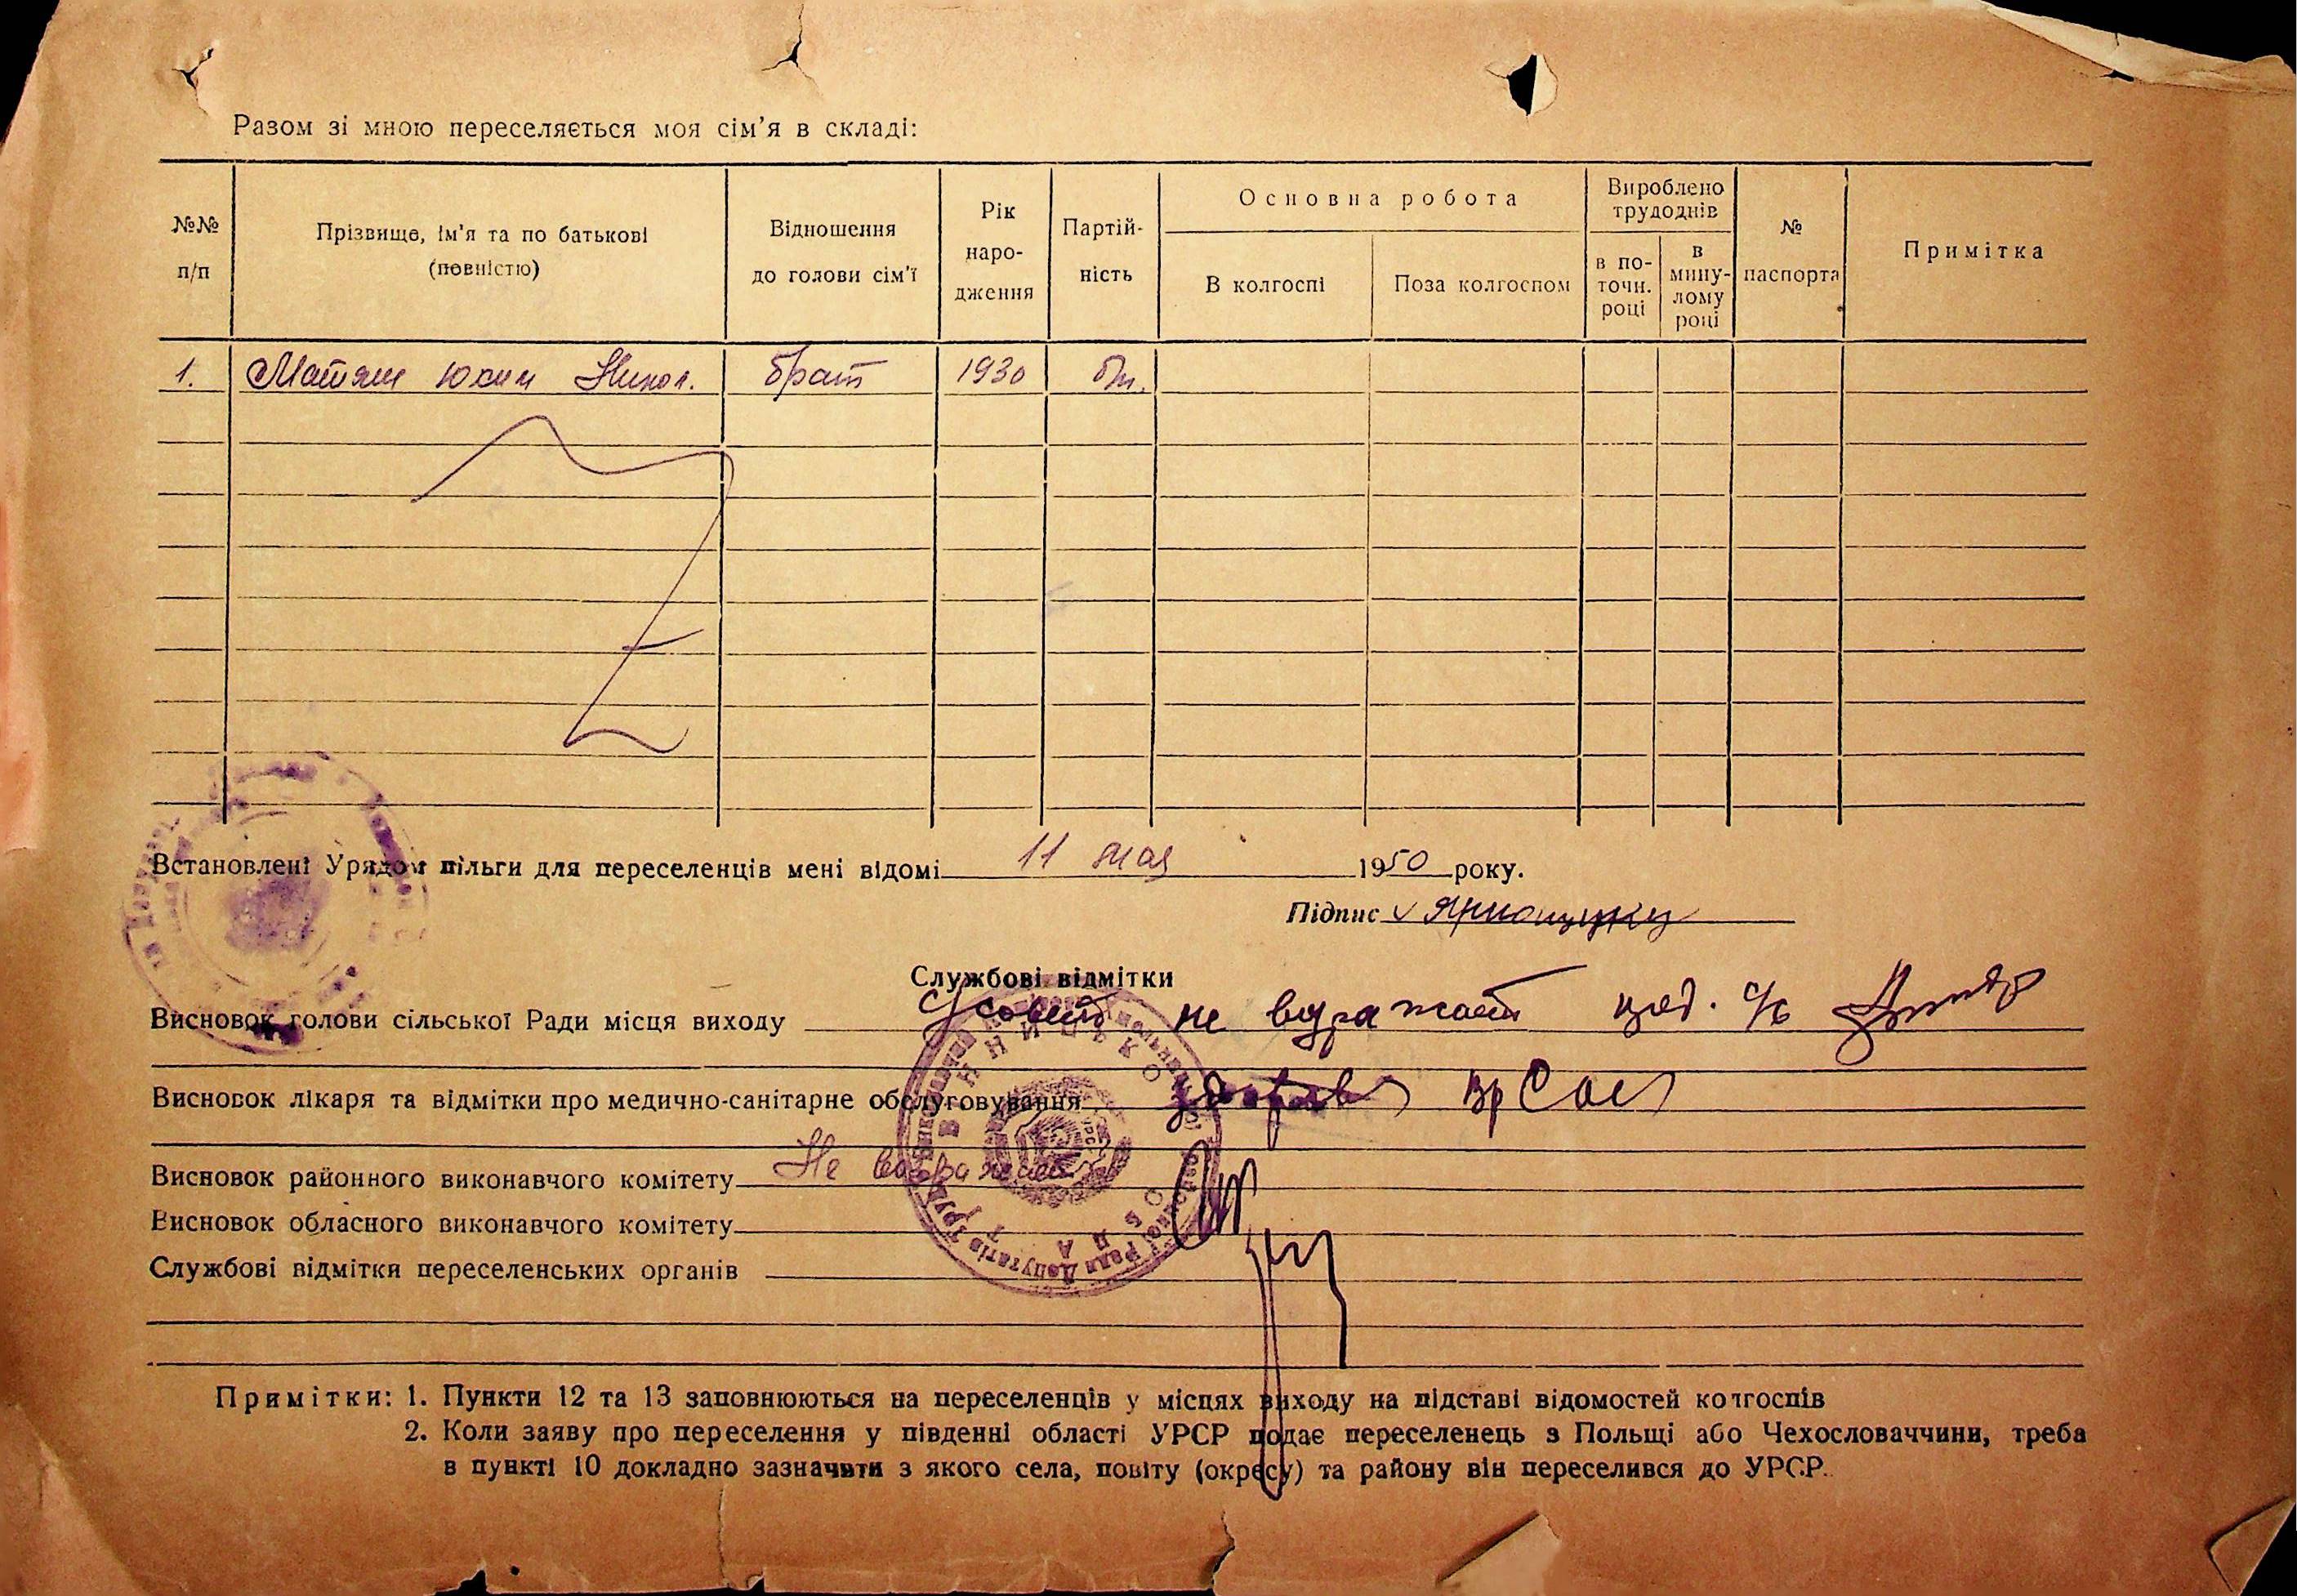 Разом зі мною переселяється моя сім'я в складі:
№№ п/п
Прізвище, ім'я та по батькові (повністю)
Відношення до голови сім'ї
Рік наро-дження
Партій-ність
Основна робота
В колгоспі
Поза колгоспом
Вироблено трудоднів
в по-точн. році
в мину-лому році
№ паспорта
Примітка
1. Матяш Юхим Никол. брат 1930 бп.
Встановлені Урядом пільги для переселенців мені відомі 11 мая 1950 року.
Підпис
Службові відмітки
Висновок голови сільської Ради місця виходу не
Висновок лікаря та відмітки про медично-санітарне обслуговування
Висновок районного виконавчого комітету Не
Висновок обласного виконавчого комітету
Службові відмітки переселенських органів
Примітки: 1. Пункти 12 та 13 заповнюються на переселенців у місцях виходу на підставі відомостей колгоспів
2. Коли заяву про переселення у південні області УРСР подає переселенець з Польщі або Чехословаччини, треба
в пункті 10 докладно зазначити з якого села, повіту (окресу) та району він переселився до УРСР.